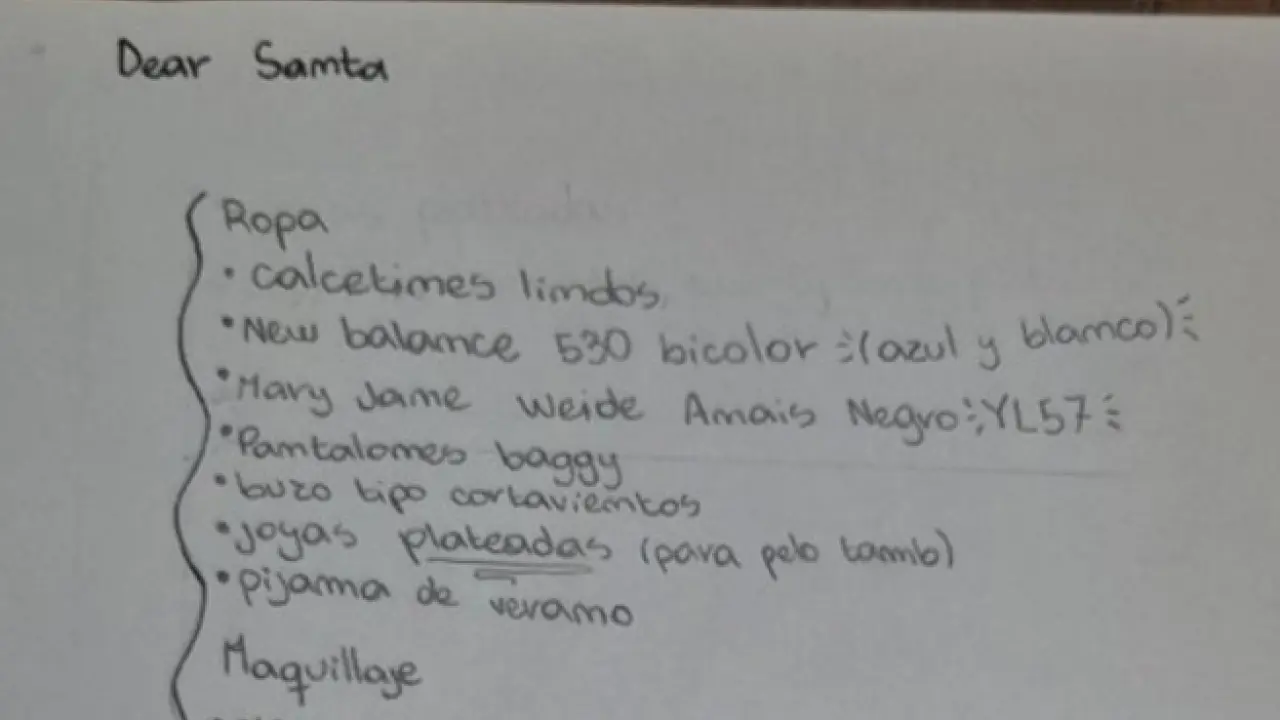 Dear Santa
Ropa
• calcetines lindos
• New balance 530 bicolor (azul y blanco)
• Mary Jane Weide Amais Negro YL57
• Pantalones baggy
• buzo tipo cortavientos
• joyas plateadas (para pelo tamb)
• pijama de verano
Maquillaje